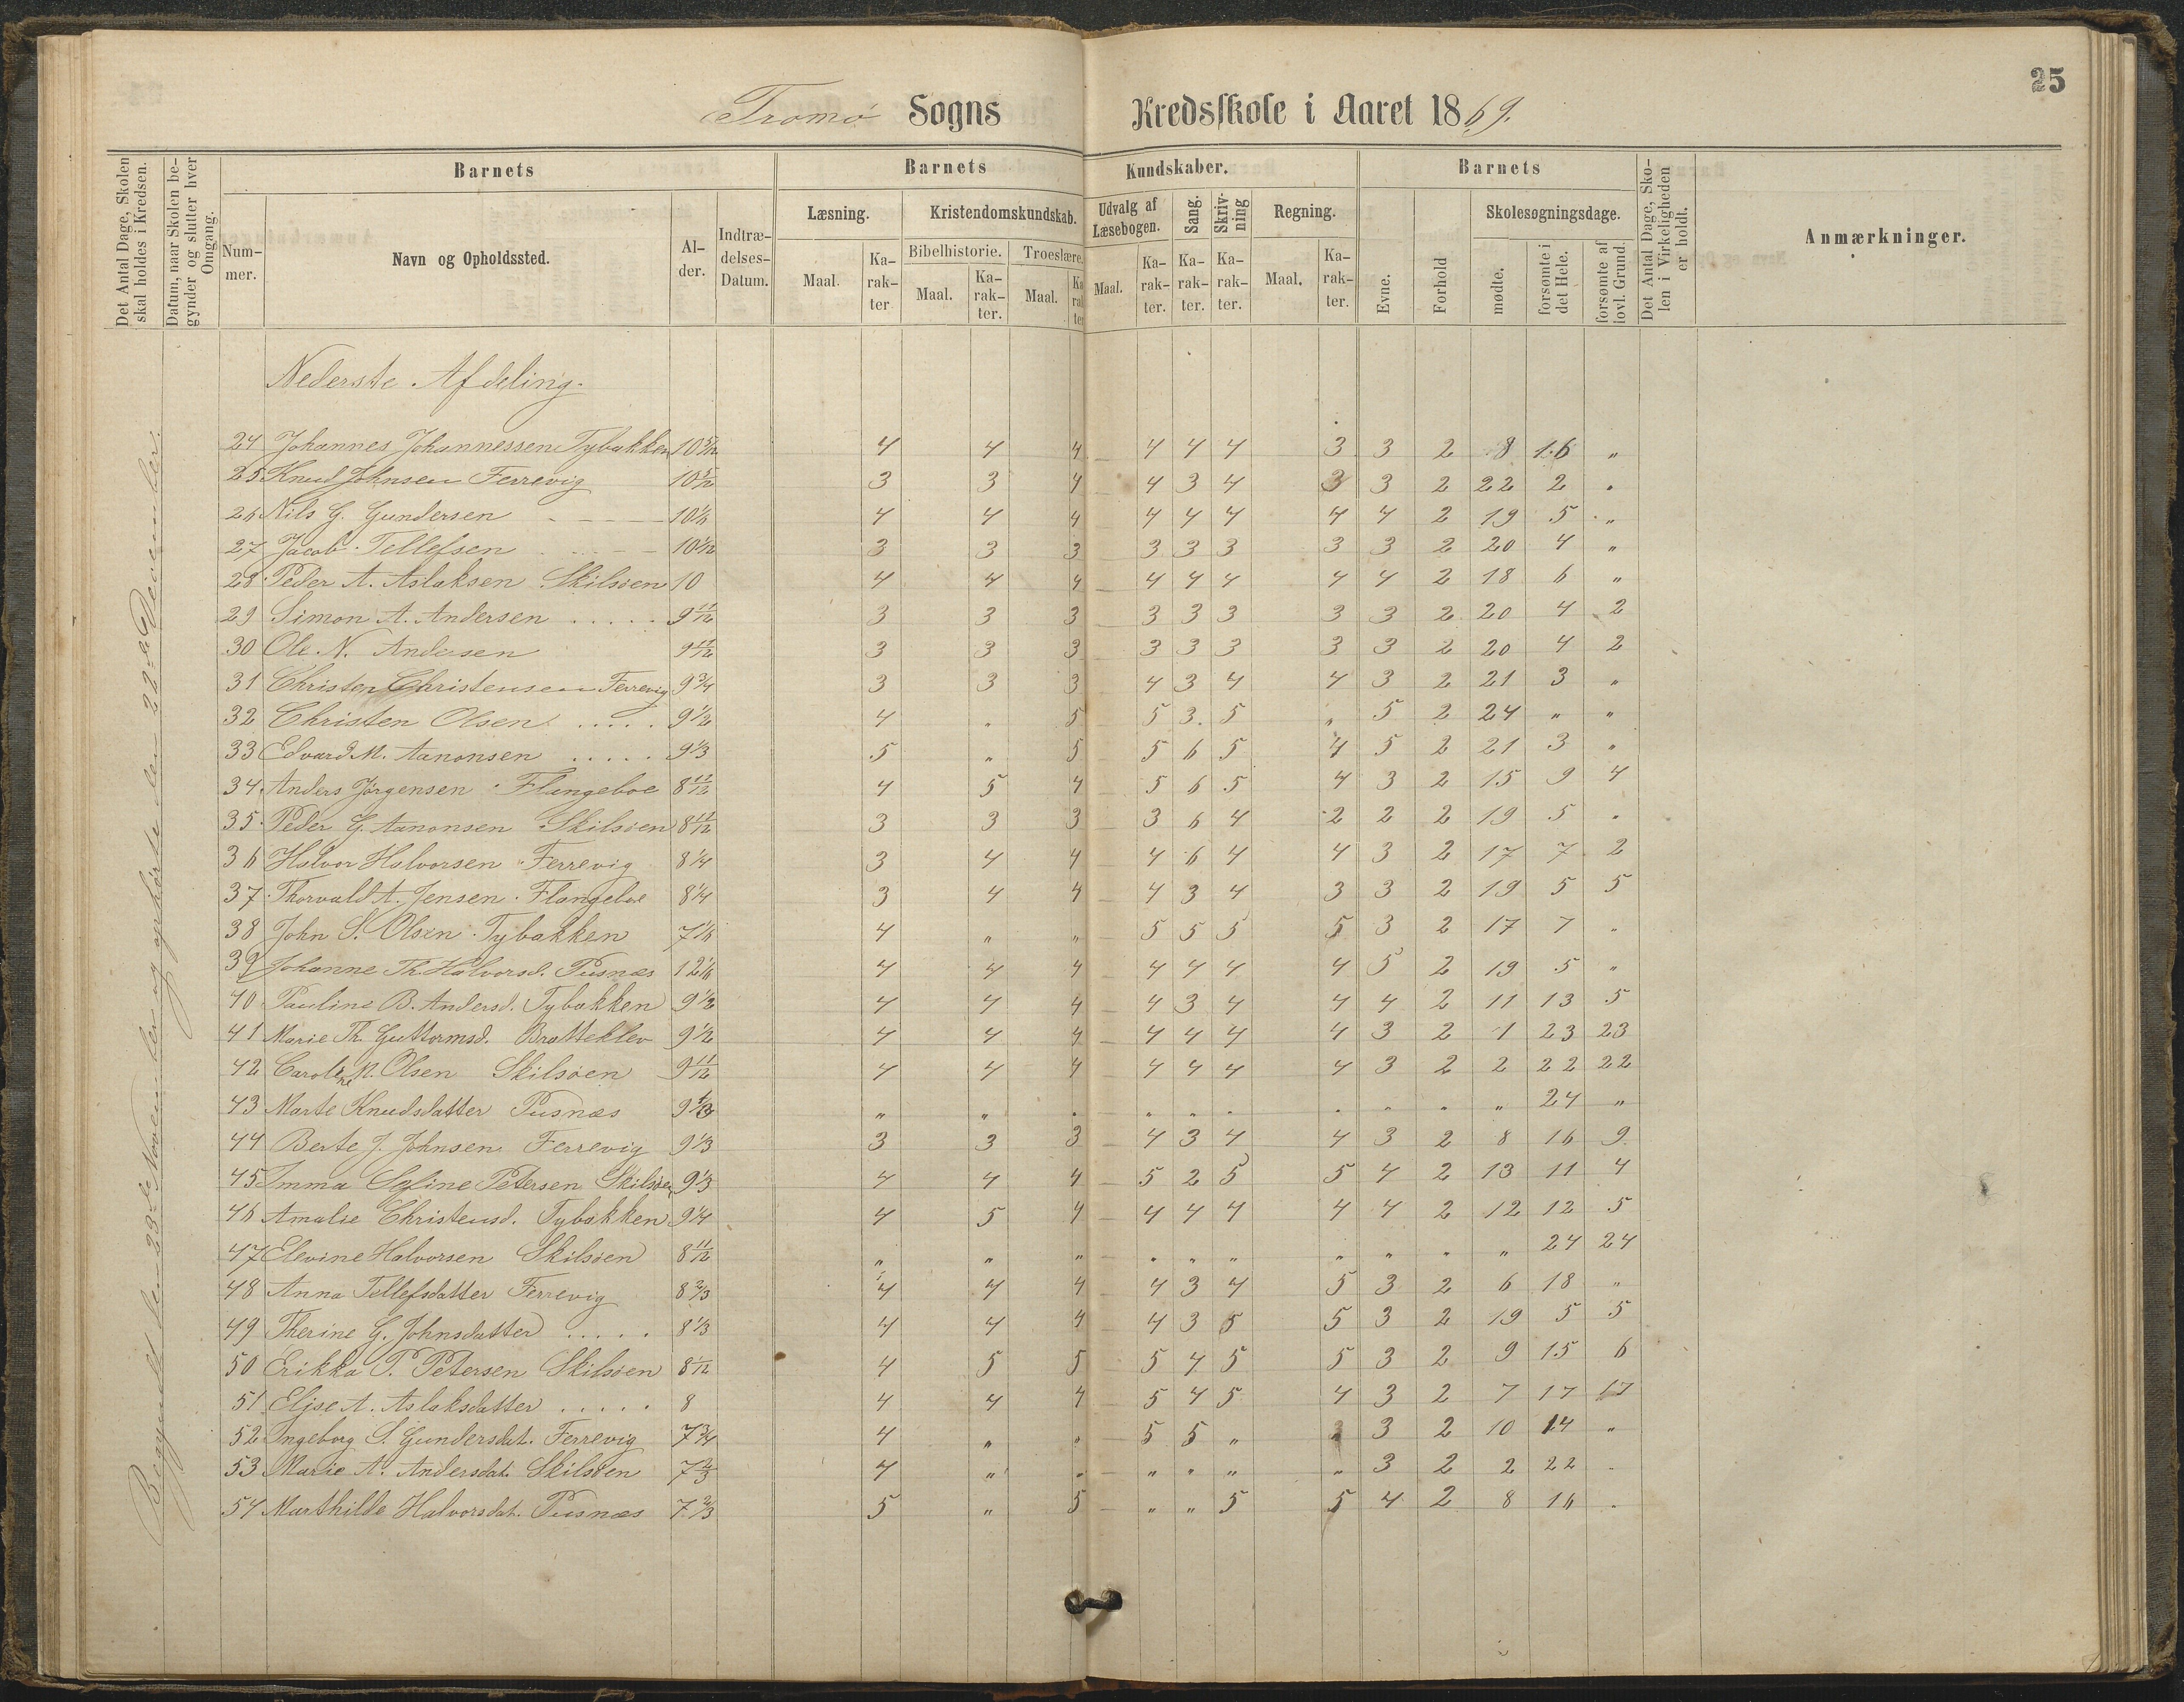 25
Tromø Sogns Kredsskole i Aaret 1869.
Det Antal Dage, Skolen skal holdes i Kredsen.
Datum, naar Skolen begynder og slutter hver Omgang.
Barnets
Barnets Kundskaber.
Barnets
Det Antal Dage, Skolen i Virkeligheden er holdt.
Anmærkninger.
Nummer. Navn og Opholdssted. Alder. Indtrædelses-Datum.
Læsning. Kristendomskundskab. Udvalg af Læsebogen. Sang. Skrivning Regning. Evne. Forhold Skolesøgningsdage.
Bibelhistorie. Troeslære.
Maal. Karakter Maal. Karakter. Maal. Karakter Maal. Karakter. Karakter. Karakter. Maal. Karakter. mødte. forsømte i det Hele. forsømte af lovl. Grund.
Begyndt den 23de November og ophørte den 22de December.
Nederste Afdeling.
24 Johannes Johannessen Tybakken 10 5/12 4 4 4 4 4 4 3 3 2 8 16 "
25 Knud Johnsen Ferrevig 10 5/12 3 3 4 4 3 4 3 3 2 22 2 "
26 Nils G. Gundersen - - - 10 1/6 4 4 4 4 4 4 4 4 2 19 5 "
27 Jacob Tellefsen - - - 10 1/12 3 3 3 3 3 3 3 3 2 20 4 "
28 Peder A. Aslaksen Skilsøen 10 4 4 4 4 4 4 4 4 2 18 6 "
29 Simon A. Andersen ..... 9 11/12 3 3 3 3 3 3 3 3 2 20 4 2
30 Ole N. Andersen 9 11/12 3 3 3 3 3 3 3 3 2 20 4 2
31 Christen Christensen Ferrevig 9 3/4 3 3 3 4 3 4 4 3 2 21 3 "
32 Christen Olsen ..... 9 1/2 4 " 5 5 3 5 " 5 2 24 " "
33 Edvard M. Aanonsen ..... 9 1/3 5 " 5 5 6 5 4 5 2 21 3 "
34 Anders Jørgensen Flangeboe 8 11/12 4 5 4 5 6 5 4 3 2 15 9 4
35 Peder G. Aanonsen Skilsøen 8 11/12 3 3 3 3 6 4 2 2 2 19 5 "
36 Halvor Halvorsen Ferrevig 8 1/4 3 4 4 4 6 4 4 3 2 17 7 2
37 Thorvald A. Jensen Flangeboe 8 1/4 3 4 4 4 3 4 3 3 2 19 5 5
38 John S. Olsen Tybakken 7 1/6 4 " " 5 5 5 5 3 2 17 7 "
39 Johanne Th. Halvorsd. Pusnæs 12 1/6 4 4 4 4 4 4 4 5 2 19 5 "
40 Pauline B. Andersd. Tybakken 9 1/2 4 4 4 4 3 4 4 4 2 11 13 5
41 Marie Th. Guttormsd. Bratteklev 9 1/2 4 4 4 4 4 4 4 3 2 1 23 23
42 Caroline N. Olsen Skilsøen 9 11/12 4 4 4 4 4 4 4 3 2 2 22 22
43 Marte Knudsdatter Pusnæs 9 1/3 " " " " " " " " " " 24 "
44 Berte J. Johnsen Ferrevig 9 1/3 3 3 3 4 3 4 4 3 2 8 16 9
45 Imma Sofine Petersen Skilsøen 9 1/3 4 4 4 5 2 5 5 4 2 13 11 4
46 Amalie Christensd. Tybakken 9 1/4 4 5 4 4 4 4 4 4 2 12 12 5
47 Elevine Halvorsen Skilsøen 8 11/12 " " " " " " " " " " 24 24
48 Anna Tellefsdatter Ferrevig 8 2/3 4 4 4 4 3 4 5 3 2 6 18 "
49 Therine G. Johnsdatter ..... 8 1/3 4 4 4 4 3 5 5 3 2 19 5 5
50 Erikka P. Petersen Skilsøen 8 1/12 4 5 5 5 4 5 5 3 2 9 15 6
51 Elise A. Aslaksdatter ..... 8 4 4 4 5 4 5 4 3 2 7 17 17
52 Ingeborg S. Gundersdat. Ferrevig 7 3/4 4 " " 5 5 " " 3 2 10 14 "
53 Marie A. Andersdat. Skilsøen 7 2/3 4 " " " " " " 3 2 2 22 "
54 Marthilde Halvorsdat. Pusnæs 7 2/3 5 " 5 " " 5 5 4 2 8 16 "